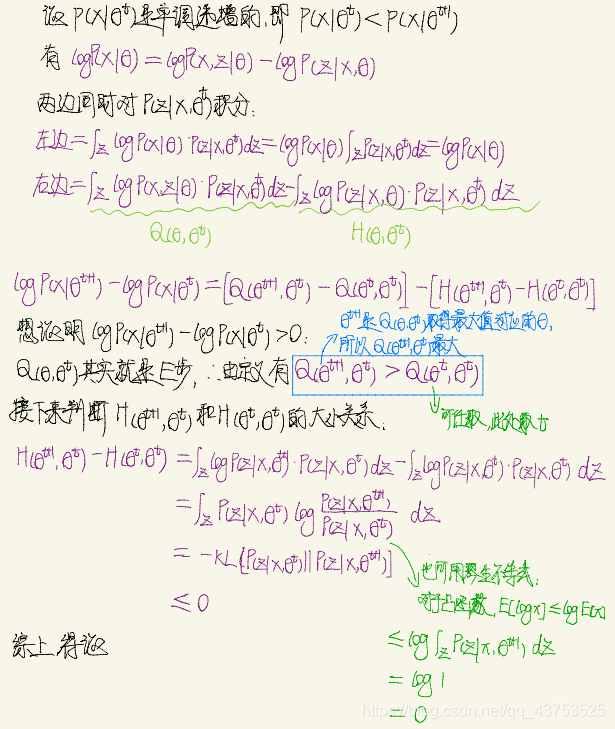 证P(x|θᵗ)是单调递增的,即 P(x|θᵗ)<P(x|θᵗ⁺¹)
有 logP(x|θ) = logP(x,z|θ) - logP(z|x,θ)
两边同时对P(z|x,θᵗ)积分:
左边=∫z logP(x|θ)·P(z|x,θᵗ)dz=logP(x|θ)∫z P(z|x,θᵗ)dz=logP(x|θ)
右边=∫z logP(x,z|θ)·P(z|x,θᵗ)dz-∫z logP(z|x,θ)·P(z|x,θᵗ)dz
Q(θ,θᵗ) H(θ,θᵗ)
logP(x|θᵗ⁺¹)-logP(x|θᵗ)=[Q(θᵗ⁺¹,θᵗ)-Q(θᵗ,θᵗ)]-[H(θᵗ⁺¹,θᵗ)-H(θᵗ,θᵗ)]
想证明 logP(x|θᵗ⁺¹)-logP(x|θᵗ)>0:
θᵗ⁺¹是Q(θ,θᵗ)取得最大值对应的θ,
所以Q(θᵗ⁺¹,θᵗ)最大
Q(θ,θᵗ)其实就是E步,∴由定义有 Q(θᵗ⁺¹,θᵗ)>Q(θᵗ,θᵗ)
可任取,此处取t
接下来判断H(θᵗ⁺¹,θᵗ)和H(θᵗ,θᵗ)的大小关系:
H(θᵗ⁺¹,θᵗ)-H(θᵗ,θᵗ)=∫z logP(z|x,θᵗ⁺¹)·P(z|x,θᵗ)dz-∫z logP(z|x,θᵗ)·P(z|x,θᵗ)dz
=∫z P(z|x,θᵗ)log P(z|x,θᵗ⁺¹)/P(z|x,θᵗ) dz
=-KL[P(z|x,θᵗ)||P(z|x,θᵗ⁺¹)]
≤0
也可用琴生不等式:
对于凸函数,E[logx]≤logE(x)
≤log∫z P(z|x,θᵗ⁺¹)dz
=log1
=0
综上,得证
https://blog.csdn.net/qq_43753525